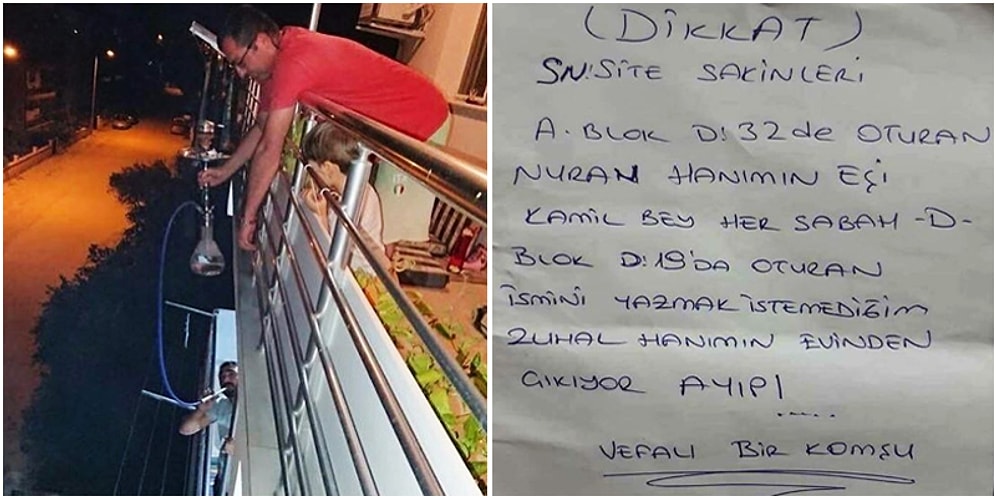 (DİKKAT)
SN: SİTE SAKİNLERİ
A. BLOK D: 32 de OTURAN
NURAN HANIMIN EÇİ
KAMİL BEY HER SABAH -D-
BLOK D: 19'DA OTURAN
İSMİNİ YAZMAK İSTEMEDİĞİM
ZUHAL HANIMIN EVİNDEN
GIKIYOR AYIP!
.....
VEFALI BİR KOMŞU